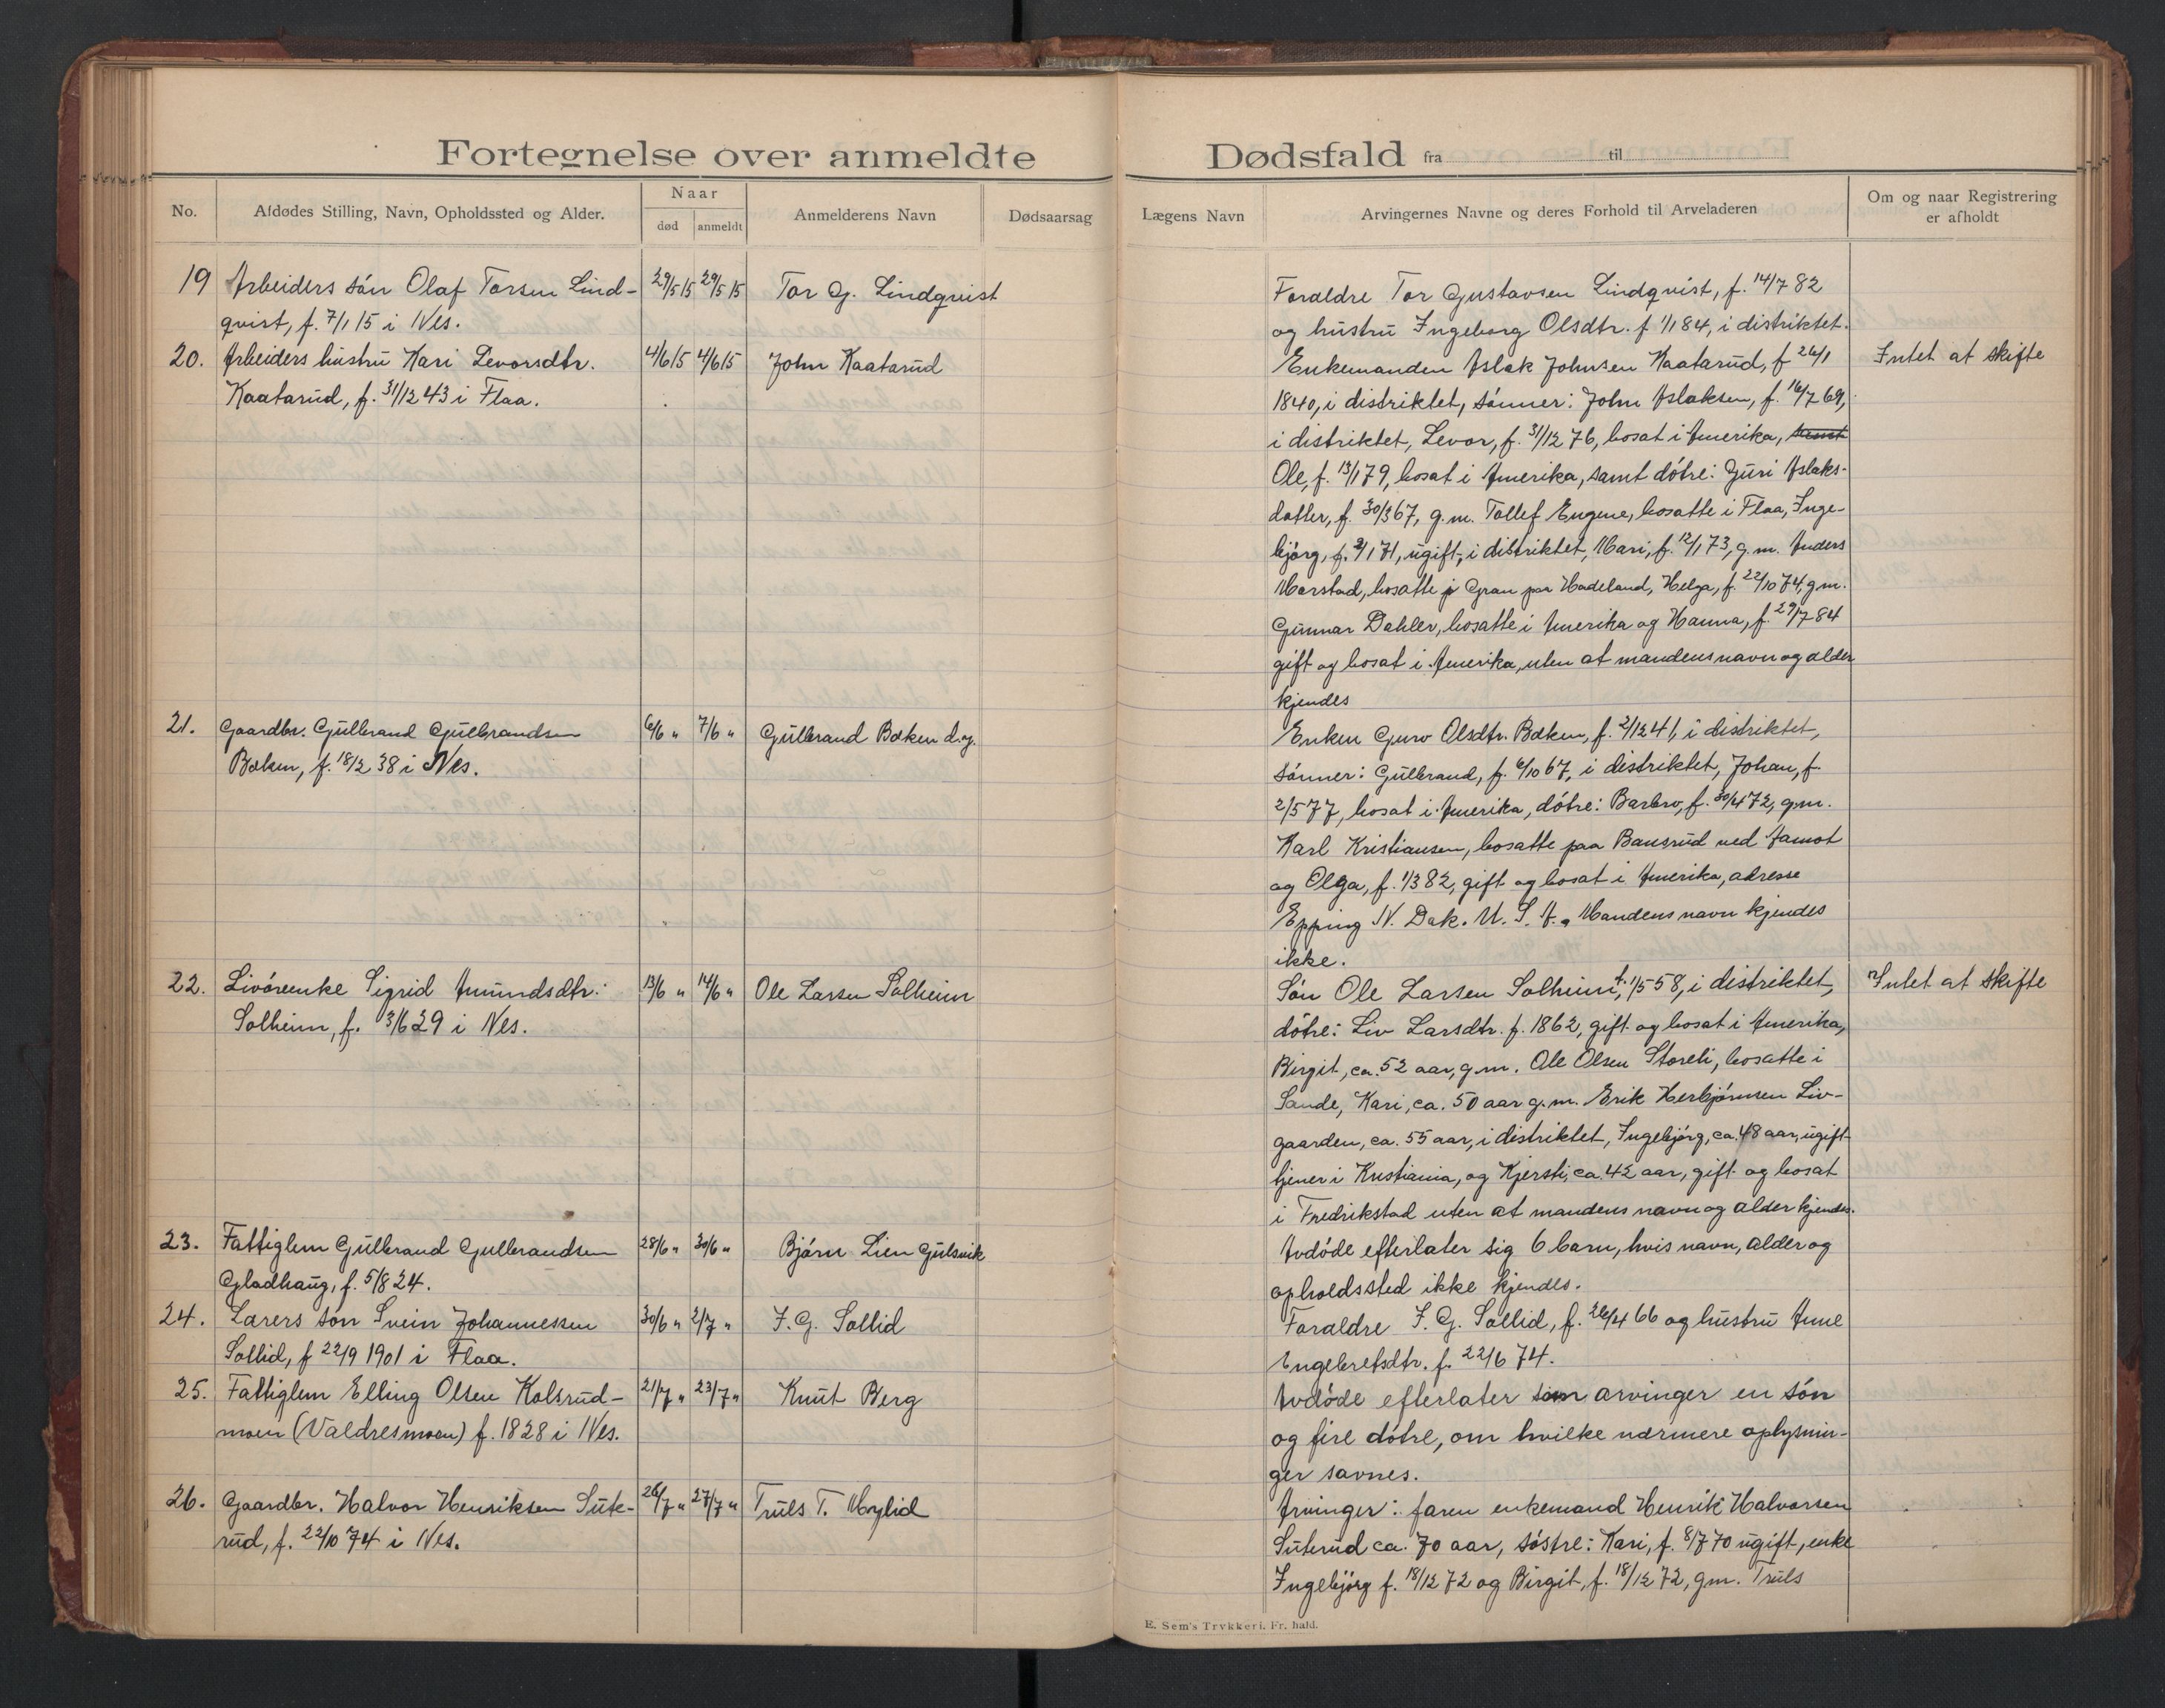 Fortegnelse over anmeldte Dødsfald fra til
No.
Afdødes Stilling, Navn, Opholdssted og Alder.
Naar
død
anmeldt
Anmelderens Navn
Dødsaarsag
Lægens Navn
Arvingernes Navne og deres Forhold til Arveladeren
Om og naar Registrering
er afholdt
19 Arbeiders søn Olaf Torsen Lind-
qvist, f. 7/1 15 i Nes.
29/5 15 29/5 15
Tor G. Lindqvist
Forældre Tor Gustavsen Lindqvist, f. 14/7 82
og hustru Ingeborg Olsdtr. f. 1/1 84, i distriktet.
20. Arbeiders hustru Kari Levorsdtr.
Kaatarud, f. 31/12 43 i Flaa.
4/6 15 4/6 15
John Kaatarud
Enkemanden Aslak Johnsen Kaatarud, f. 26/1
1840, i distriktet, sønner: John Aslaksen, f. 16/7 69,
i distriktet, Levor, f. 31/12 76, bosat i Amerika, samt
Ole, f. 13/1 79, bosat i Amerika, samt døtre: Guri Aslaks-
datter, f. 30/3 67, g.m. Tollef Eugene, bosatte i Flaa, Inge-
bjørg, f. 2/1 71, ugift, i distriktet, Mari, f. 12/1 73, g.m. Anders
Horstad, bosatte i Gran paa Hadeland, Helga, f. 22/10 74, g.m.
Gunnar Dahler, bosatte i Amerika og Hanna, f. 29/7 84
gift og bosat i Amerika, uten at mandens navn og alder
kjendes
Intet at skifte
21. Gaardbr. Gulbrand Gulbrandsen
Bakken, f. 18/2 38 i Nes.
6/6 " 7/6 "
Gulbrand Bakken d.y.
Enken Guro Olsdtr. Bakken, f. 2/12 41, i distriktet,
sønner: Gulbrand, f. 6/10 67, i distriktet, Johan, f.
2/5 77, bosat i Amerika, døtre: Barbro, f. 30/4 72, g.m.
Karl Kristiansen, bosatte paa Bansrud ved Aamot
og Olga, f. 1/3 82, gift og bosat i Amerika, adresse
Epping N. Dak. U. S. A. Mandens navn kjendes
ikke.
22. Livørenke Sigrid Amundsdtr.
Solheim, f. 3/6 29 i Nes.
13/6 " 14/6 "
Ole Larsen Solheim
Søn Ole Larsen Solheim, f. 1/5 58, i distriktet,
døtre: Liv Larsdtr. f. 1862, gift og bosat i Amerika,
Birgit, ca. 52 aar, g.m. Ole Olsen Storeli, bosatte i
Sande, Kari, ca. 50 aar g.m. Erik Herbjørnsen Liv-
gaarden, ca. 55 aar, i distriktet, Ingebjørg, ca. 48 aar, ugift
tjener i Kristiania, og Kjersti, ca. 42 aar, gift og bosat
i Fredrikstad uten at mandens navn og alder kjendes.
Intet at skifte
23. Fattiglem Gulbrand Gulbrandsen
Gladhaug, f. 5/8 24.
28/6 " 30/6 "
Bjørn Lien Gulsvik
Avdøde efterlater sig 6 barn, hvis navn, alder og
opholdssted ikke kjendes.
24. Lærers søn Svein Johannessen
Sollid, f 22/9 1901 i Flaa.
30/6 " 2/7 "
J. G. Sollid
Forældre J. G. Sollid, f. 26/4 66 og hustru Anne
Engebretsdtr. f. 22/6 74.
25. Fattiglem Elling Olsen Kolsrud-
moen (Valdresmoen) f. 1828 i Nes.
21/7 " 23/7 "
Knut Berg
Avdøde efterlater som arvinger en søn
og fire døtre, om hvilke nærmere oplysnin-
ger savnes.
26. Gaardbr. Halvor Henriksen Sute-
rud, f. 22/10 74 i Nes.
26/7 " 27/7 "
Truls T. Myhlid
Arvinger: faren enkemand Henrik Halvorsen
Suterud ca. 70 aar, søstre: Kari, f. 8/7 70 ugift, enke
Ingebjørg f. 18/12 72 og Birgit, f. 18/12 72, g.m. Truls
E. Sem's Trykkeri. Fr. hald.